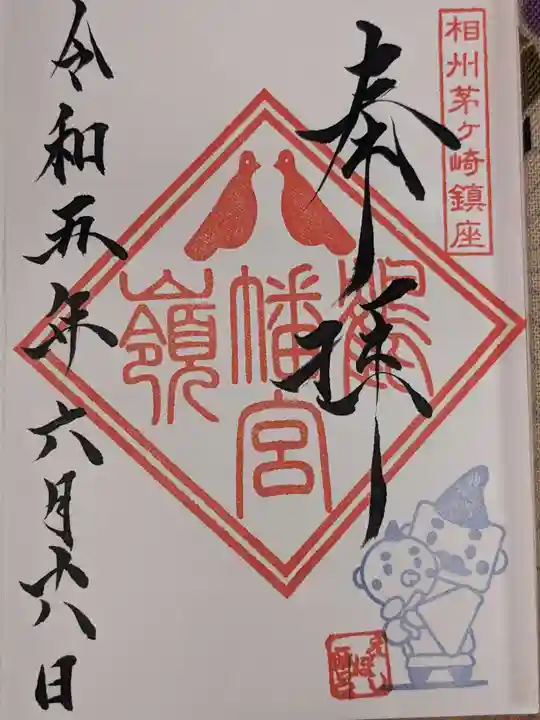 相州茅ヶ崎鎮座
奉拝
鶴嶺
八幡宮
令和五年六月十八日
えぼし